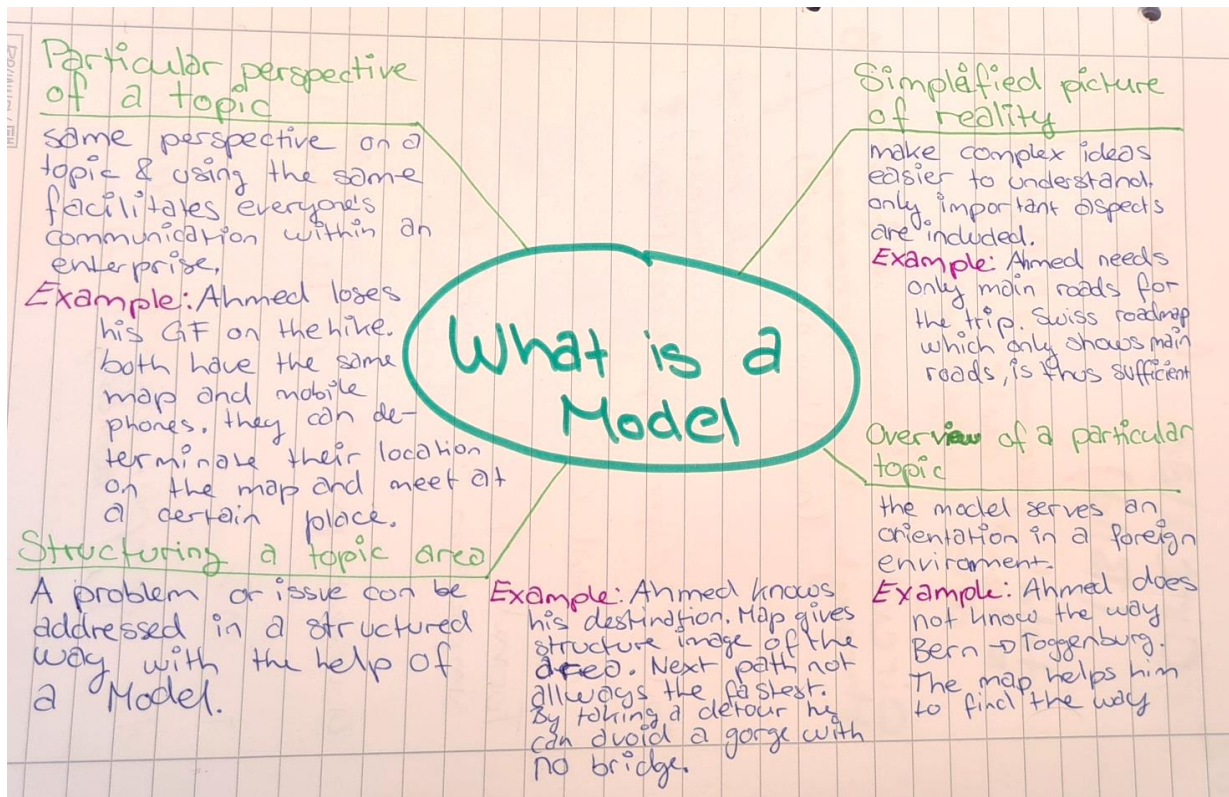 Particular perspective
of a topic
same perspective on a
topic & using the same
facilitates everyone's
communication within an
enterprise.
Example: Ahmed loses
his GF on the hike.
both have the same
map and mobile
phones. they can de-
terminate their location
on the map and meet at
a certain place.
Structuring a topic area
A problem or issue can be
addressed in a structured
way with the help of
a Model.
What is a
Model
Example: Ahmed knows
his destination. Map gives
structure image of the
area. Next path not
allways the fastest.
By taking a detour he
can avoid a gorge with
no bridge.
Simplified picture
of reality
make complex ideas
easier to understand.
only important aspects
are included.
Example: Ahmed needs
only main roads for
the trip. Swiss roadmap
which only shows main
roads, is thus sufficient
Overview of a particular
topic
the model serves an
orientation in a foreign
enviroment.
Example: Ahmed does
not know the way
Bern → Toggenburg.
The map helps him
to find the way